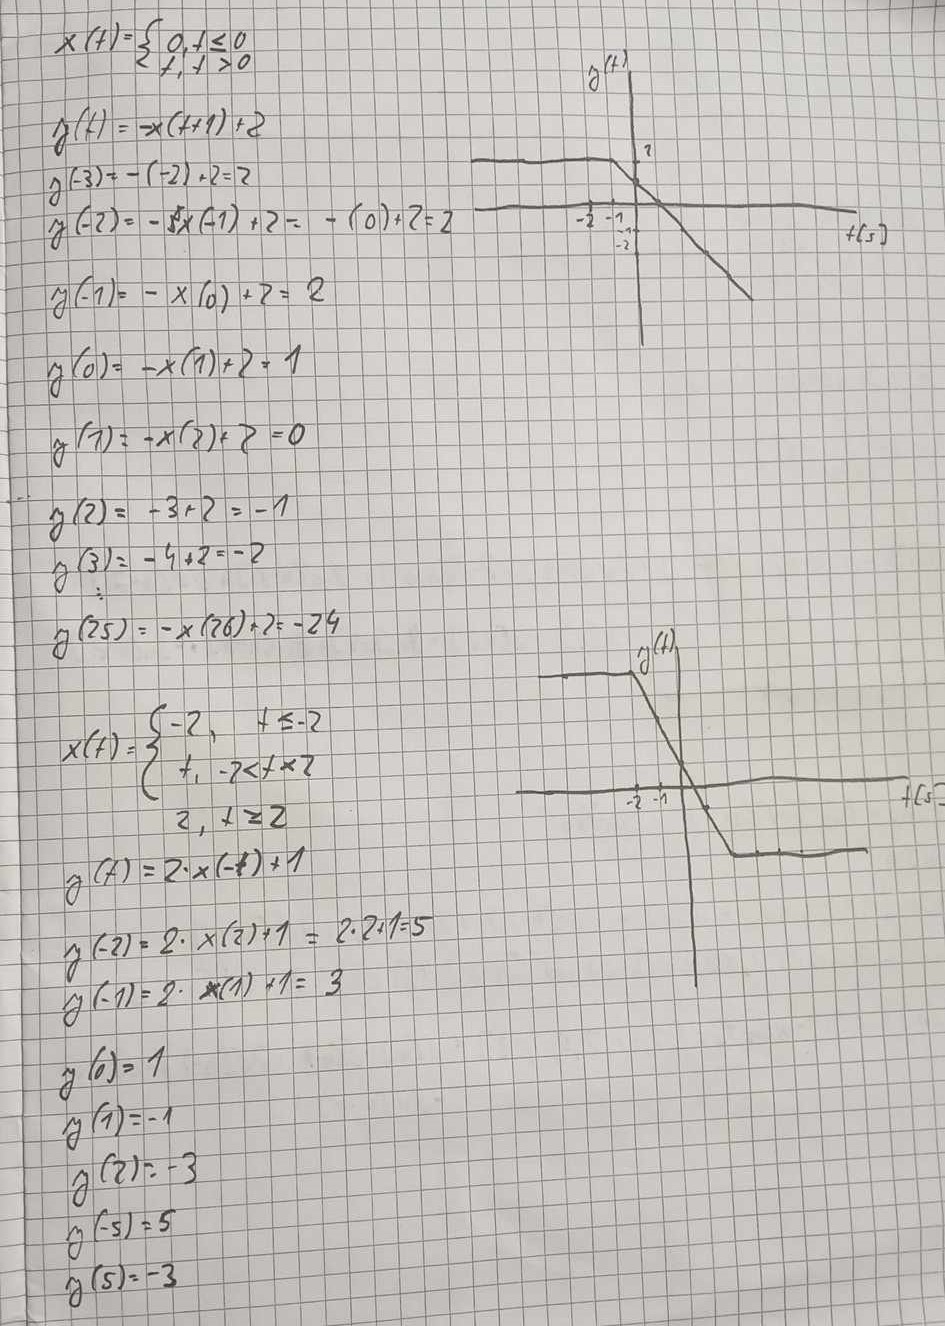 x(t)={ 0, t ≤ 0
t, t > 0
y(t)
y(t) = -x(t+1)+2
2
y(-3)= -(-2)+2=2
y(-2)= - x(-1)+2= -(0)+2=2
-2 -1
-1
-2
t[s]
y(-1)= - x(0)+2= 2
y(0)= -x(1)+2=1
y(1)= -x(2)+2 =0
y(2)= -3+2 = -1
y(3)= -4+2=-2
⋮
y(25) = -x(26)+2=-24
y(t)
x(t)={ -2, t ≤ -2
t, -2<t<2
2, t ≥ 2
-2 -1
t[s]
y(t) = 2·x(-t)+1
y(-2)= 2· x(2)+1 = 2·2+1=5
y(-1)=2· x(1)+1= 3
y(0)= 1
y(1)=-1
y(2)=-3
y(-5)=5
y(5)=-3